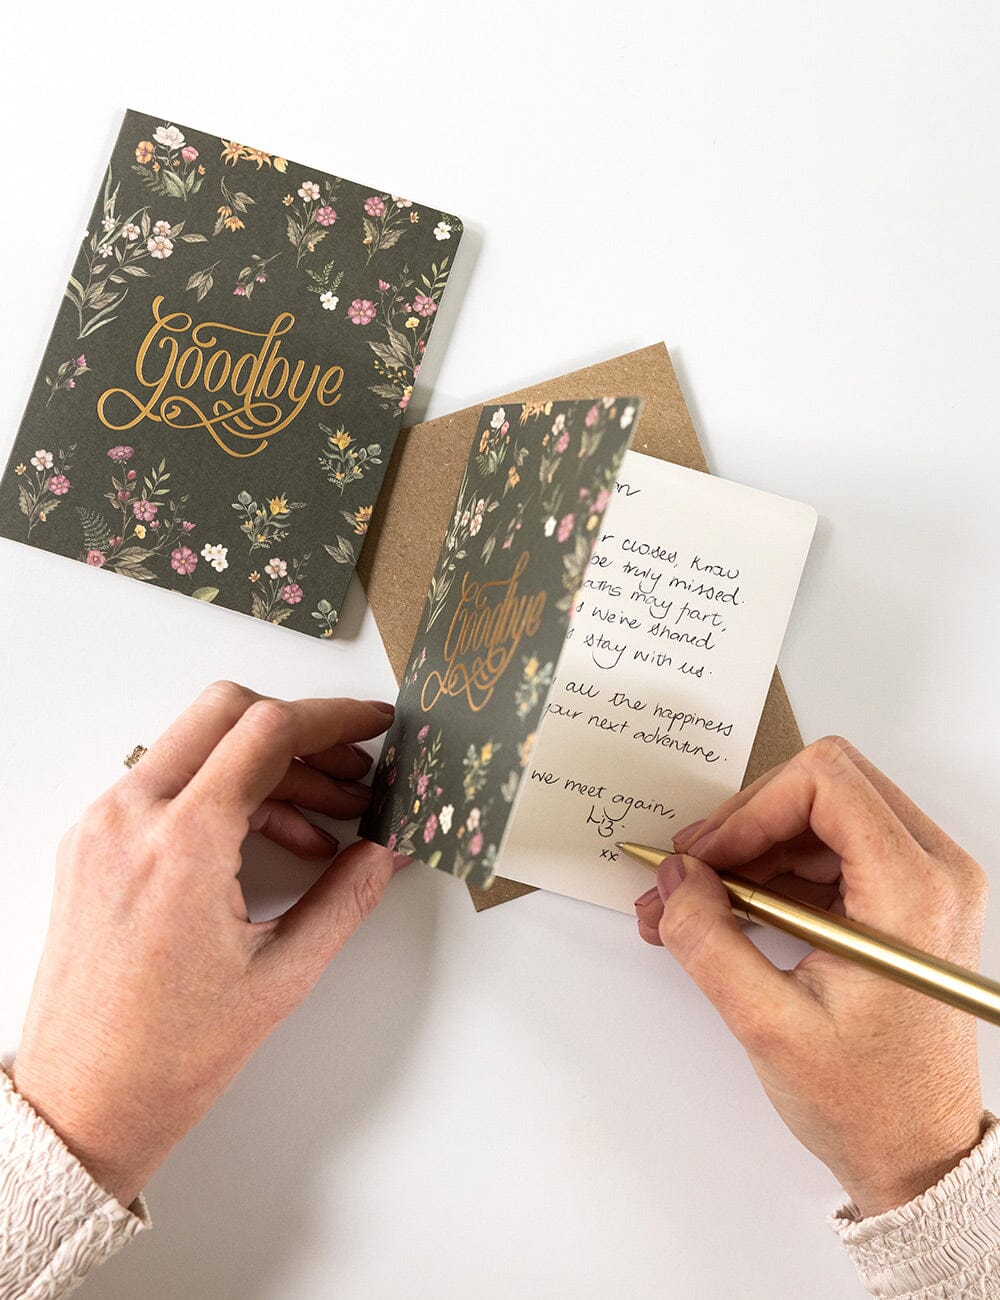 Goodbye
Goodbye
closes, know
be truly missed.
may part,
we've shared
stay with us.
all the happiness
your next adventure.
we meet again,
Liz.
xx